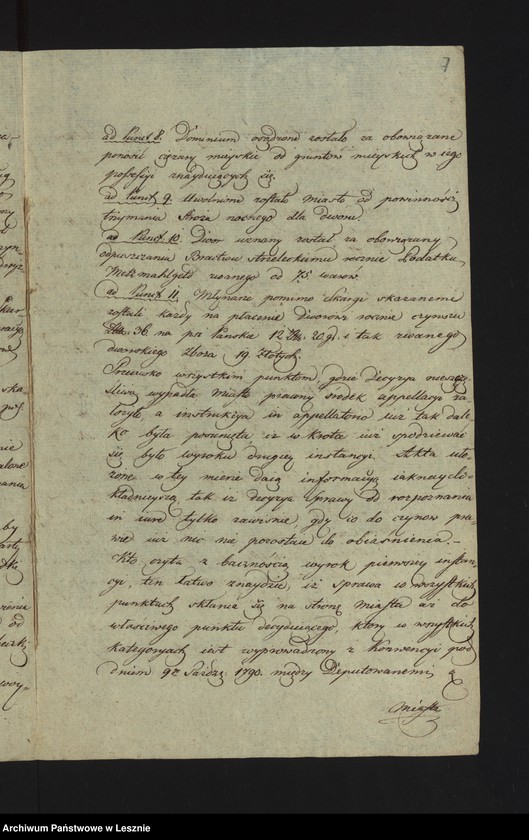 7
ad Punct 8. Dominium osądzone zostało za obowiązane
ponosić ciężary mieyskie od gruntów mieyskich w iego
possessyi znayduiących się.
ad Punct. 9. Uwolnione zostało Miasto od powinności
trzymania Stroża nocnego dla Dworu.
ad Punct. 10. Dwór uznany został za obowiązany
odpuszczania Bractwu strzeleckiemu rocznie Podatku
Metzmahlgeld zwanego od 75 warów.
ad Punct. 11. Młynarze pomimo skargi skazanemi
zostali każdy na płacenie Dworowi rocznie czynszu
36. na psi Pańskie 12 20 gl. i tak zwanego
dworskiego zboża 19. złotych.
Przeciwko wszystkim punktom, gdzie Decyzya nieszczę-
śliwa wypadła Miasto prawny środek appellacyi za
łożyło a instrukcya in appellatorio iuż tak dale
ko była posunięta iż w krótce iuż spodziewać
się było wyroku drugiey instancyi. Akta uło
żone w tey mierze daią informacyą iaknaydo-
kładnieyszą tak iż decyzya sprawy od rozpoznania
in iure tylko zawiśnie, gdy co do czynów pra-
wie iuż nic nie pozostaie do obiaśnienia. -
Kto czyta z bacznością wyrok pierwszey instan-
cyi, ten łatwo znaydzie, iż sprawa w wszystkich
punktach skłania się na stronę miasta aż do
właściwego punktu decyduiącego, który w wszystkich
kategoryach iest wyprowadzony z Konwencyi pod
dniem 9o. Paźdz. 1790. między Deputowanemi
Miasta
Archiwum Państwowe w Lesznie